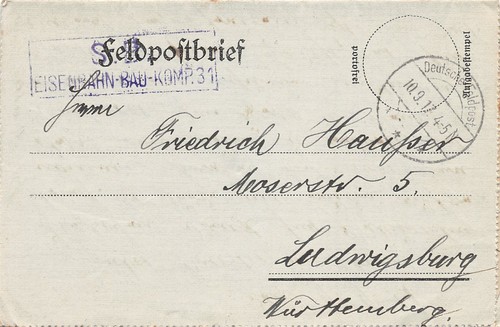 Feldpostbrief
S. B.
EISENBAHN-BAU-KOMP. 31
portofrei
Aufgabestempel
Deutsche Feldpost
10.9.17 4-5 N
Herrn
Friedrich Hausser
Moserstr. 5.
Ludwigsburg
Württemberg.